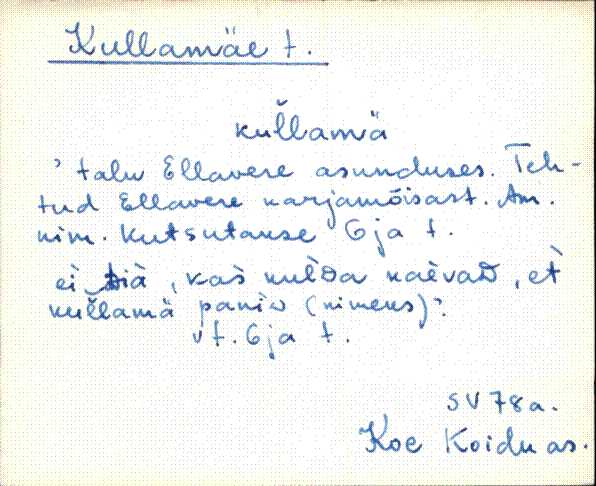 Kullamäe t.
kul̆lamä
' talu Ellavere asunduses. Teh-
tud Ellavere karjamõisast. Am.
nim. Kutsutakse Gja t.
ei tiä, kas kulda kaevaD, et
kul̆lamä paniD (nimeks)?
vt. Gja t.
SV 78a.
Koe Koidu as.